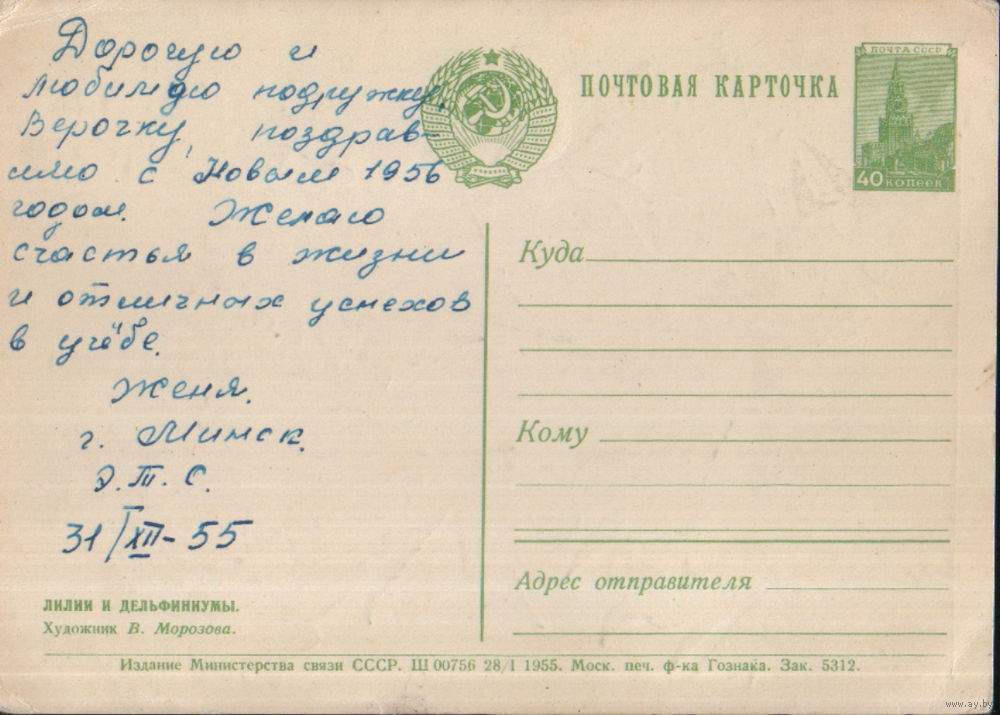 Дорогую и
любимую подружку,
Верочку, поздрав-
ляю с Новым 1956
годом. Желаю
счастья в жизни
и отличных успехов
в учёбе.
Женя.
г. Минск.
Э.Т.С.
31/XII-55
ЛИЛИИ И ДЕЛЬФИНИУМЫ.
Художник В. Морозова.
ПОЧТОВАЯ КАРТОЧКА
ПОЧТА СССР
40 КОПЕЕК
Куда
Кому
Адрес отправителя
Издание Министерства связи СССР. Ш 00756 28/I 1955. Моск. печ. ф-ка Гознака. Зак. 5312.
www.ay.by